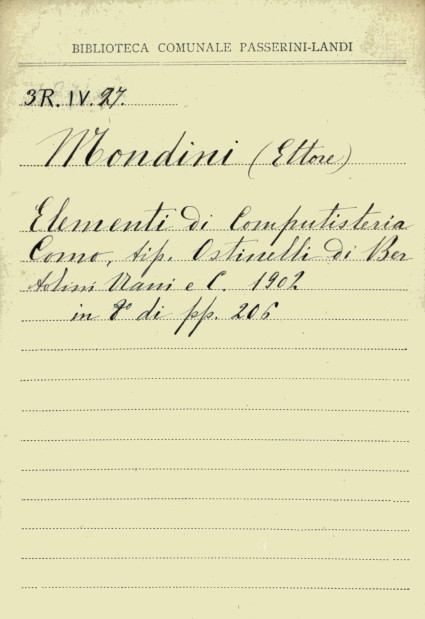 BIBLIOTECA COMUNALE PASSERINI-LANDI
3R. IV. 27.
Mondini (Ettore)
Elementi di Computisteria
Como, tip. Ostinelli di Ber
tolini Nani e C. 1902
in 8° di pp. 206